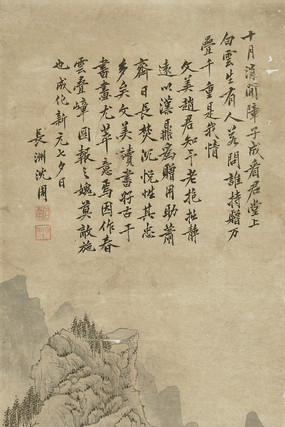 十月消閒障子成看君堂上
白雲生有人若問誰持贈万
疊千重是我情
文美趙君知予老拙静
遠以漢鼎為贈用助蕭
齋日長焚沉悅性其
多矣文美讀書古于
書畫尤意焉因作春
雲疊嶂圖報之媿莫敵施
也成化新元七夕日
長洲沈周